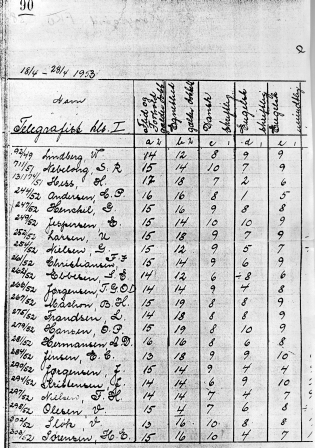 90
18/4 - 28/4 1953
Navn
Dansk
Engelsk
Telegrafist kls. I
a b c d e
92/49 Lundberg, V 14 12 8 9 9
711/51 Hebelong, S. R 15 14 10 7 9
Hess, H. 17 18 7 2 6
244/52 Andersen, E. P 16 16 8 1 5
247/52 Henchel, G. 15 16 9 8 8
249/52 Jespersen, E. 15 14 10 10 9
250/52 Larsen, U 15 18 9 7 9
254/52 Nielsen, G. 15 12 9 5 7
261/52 Christiansen, F. F 15 14 9 6 9
262/52 Ebbesen, S. E 14 12 6 -8 6
266/52 Jørgensen, T. G. O. D 14 14 9 4 8
267/52 B. H. 15 19 8 8 9
275/52 Frandsen, L 14 18 8 8 9
279/52 Hansen, O. P. 15 19 8 10 9
281/52 Hermansen, L. D. 16 16 8 6 8
284/52 Jensen, E. E. 13 18 9 9 10
290/52 Jørgensen, J. 15 14 9 4 4
294/52 Kristensen, E 14 14 6 9 10
297/52 Nielsen, F. H 14 14 7 4 7
298/52 Olesen, V 15 4 7 6 8
302/52 Slok, V 13 16 10 8 8
303/52 Sørensen, H. E. 15 16 10 4 7